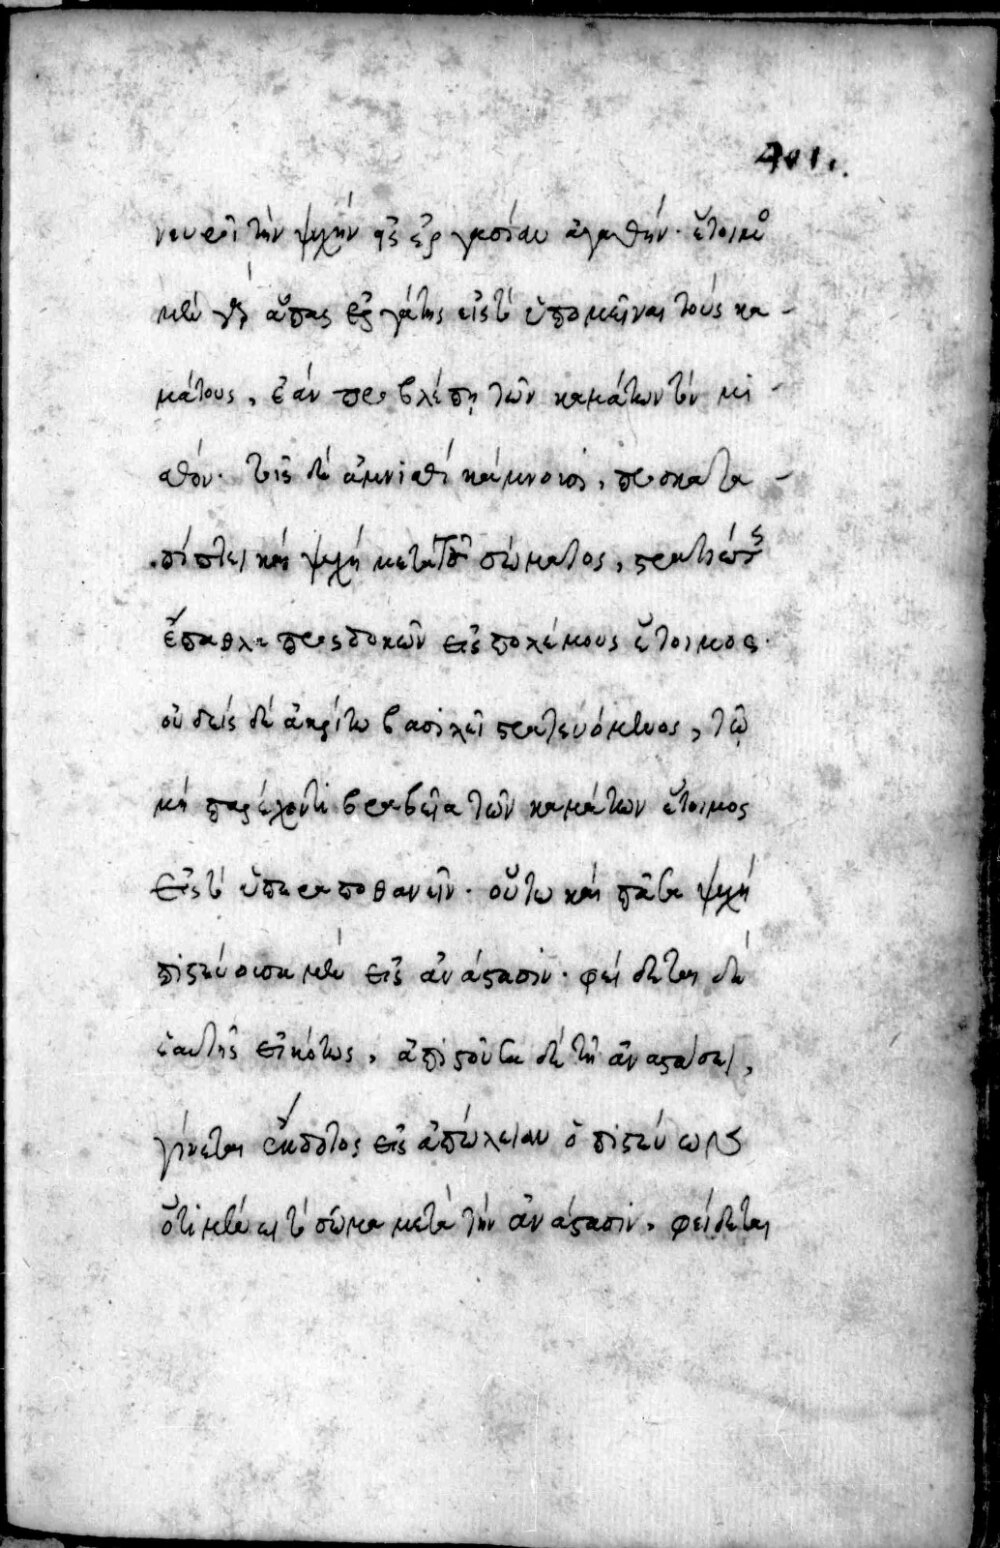 401.
νευροῖ τὴν ψυχήν εἰς ἐργασίαν ἀγαθήν· ἕτοιμο
μὲν γὰρ ἅπας ἐργάτης εἰς τὸ ὑπομεῖναι τοὺς κα-
μάτους, ἐὰν προβλέπη τῶν καμάτων τὸν μι-
σθόν· τοῖς δὲ ἀμισθὶ κάμνουσι, προσκατα-
πίπτει καὶ ψυχὴ μετὰ τοῦ σώματος, στρατιώτης
ἔπαθλα προσδοκῶν εἰς πολέμους ἕτοιμος·
οὐδεὶς δὲ ἀκρίτω βασιλεῖ στρατευόμενος, τῶ
μὴ παρέχοντι βραβεῖα τῶν καμάτων ἕτοιμος
εἰς τὸ ὑπεραποθανεῖν· οὕτω καὶ πᾶσα ψυχὴ
πιστεύουσα μὲν εἰς ἀνάστασιν· φείδεται δὲ
ἑαυτῆς εἰκότως, ἀπιστοῦσα δὲ τῆ ἀναστάσει,
γίνεται ἔκδοτος εἰς ἀπώλειαν ὁ πιστεύων
ὅτι μένει τὸ σῶμα μετὰ τὴν ἀνάστασιν, φείδεται